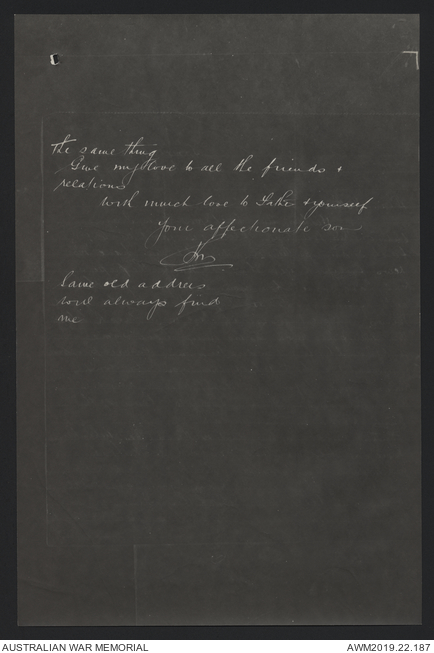 the same thing
Give my love to all the friends +
relations
With much love to Father + yourself
Your affectionate son
Same old address
will always find
me
AUSTRALIAN WAR MEMORIAL
AWM2019.22.187